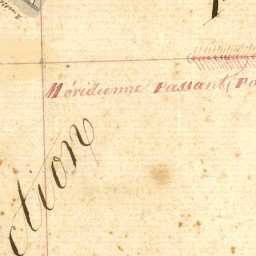 Méridienne Passant
ction